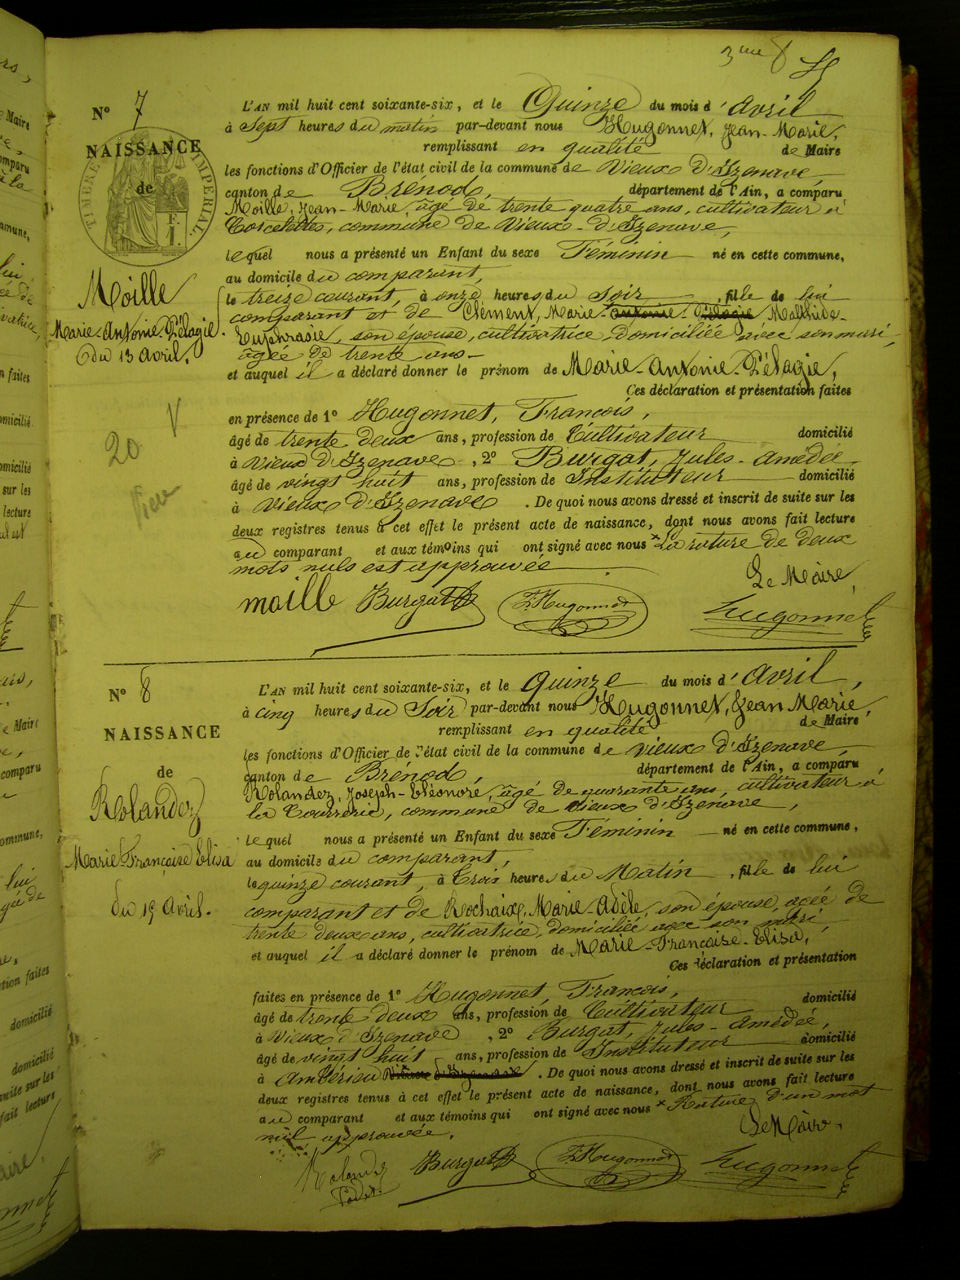 3me 8
N° 7
NAISSANCE
de
TIMBRE IMPERIAL
Moille
Marie-Antonie-Pélagie.
du 13 avril.
20 V
L'AN mil huit cent soixante-six, et le Quinze du mois d'avril
à sept heures du matin par-devant nous Hugonnet, Jean-Marie,
remplissant en qualité de Maire
les fonctions d'Officier de l'état civil de la commune de Vieux d'Izenave,
canton de Brénod, département de l'Ain, a comparu
Moille, Jean-Marie, âgé de trente quatre ans, cultivateur à
Corcelettes, commune de Vieux-d'Izenave,
lequel nous a présenté un Enfant du sexe Féminin né en cette commune,
au domicile du comparant,
le treize courant, à onze heures du soir, fille de lui
comparant et de Clément, Marie-Antonie-Pélagie Mathilde-
Euphrasie, son épouse, cultivatrice, domiciliée avec son mari,
agée de trente ans—
et auquel il a déclaré donner le prénom de Marie-Antonie-Pélagie,
Ces déclaration et présentation faites
en présence de 1° Hugonnet, François,
âgé de trente deux ans, profession de Cultivateur domicilié
à Vieux d'Izenave, 2° Burgat, Jules-Amédée-
âgé de vingt huit ans, profession de Instituteur domicilié
à Vieux d'Izenave. De quoi nous avons dressé et inscrit de suite sur les
deux registres tenus à cet effet le présent acte de naissance, dont nous avons fait lecture
au comparant et aux témoins qui ont signé avec nous × La rature de deux
mots nuls est approuvée
Le Maire,
moille Burgat F. Hugonnet Hugonnet
N° 8
NAISSANCE
de
Rolandez
Marie Françaíse Elisa
du 15 Avril.
L'AN mil huit cent soixante-six, et le quinze du mois d'avril,
à cinq heures du Soir par-devant nous Hugonnet, Jean Marie,
remplissant en qualité de Maire
les fonctions d'Officier de l'état civil de la commune de vieux d'Izenave,
canton de Brénod, département de l'Ain, a comparu
Rolandez, Joseph-Eléonore, âgé de quarante ans, cultivateur à
la Courrerie, commune de vieux d'Izenave,
lequel nous a présenté un Enfant du sexe Féminin né en cette commune,
au domicile du comparant,
le quinze courant, à Trois heures du Matin, fille de lui
comparant et de Rochaix, Marie Adèle, son épouse, agée de
trente deux ans, cultivatrice, domiciliée avec son mari,
et auquel il a déclaré donner le prénom de Marie-Françaíse-Elisa,
Ces déclaration et présentation
faites en présence de 1° Hugonnet, François,
âgé de trente deux ans, profession de Cultivateur domicilié
à Vieux d'Izenave, 2° Burgat, Jules-Amédée,
âgé de vingt huit ans, profession de Instituteur domicilié
à Ambérieu Vieux d'Izenave. De quoi nous avons dressé et inscrit de suite sur les
deux registres tenus à cet effet le présent acte de naissance, dont nous avons fait lecture
au comparant et aux témoins qui ont signé avec nous × Rature d'un mot
nul approuvée.
Le Maire,
Rolandez Burgat F. Hugonnet Hugonnet